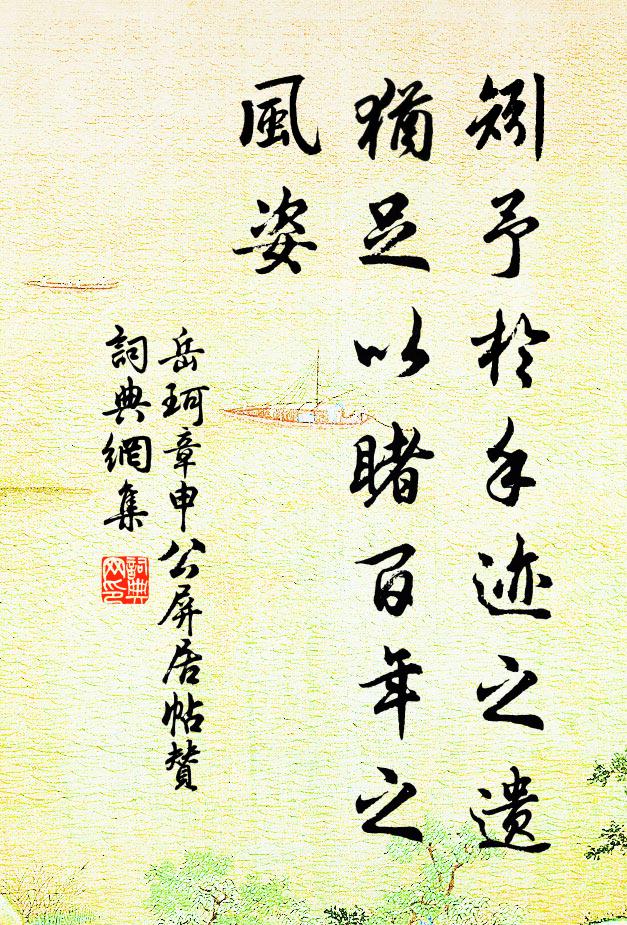 矧予於手迹之遗
猶足以睹百年之
風姿
岳珂章申公屏居帖贊
詞典網集
詞典
网印